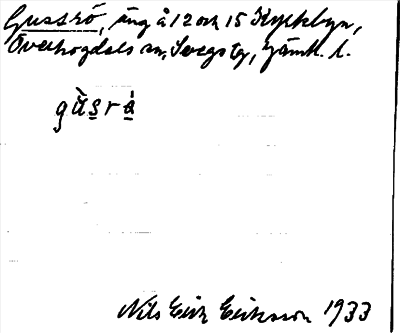 Gussró, äng å 12 och 15 Kyrkbyn,
Överhogdals sn, Svegs tg, Jämtl. l.
gùsrá
Nils Erik Eriksson 1933